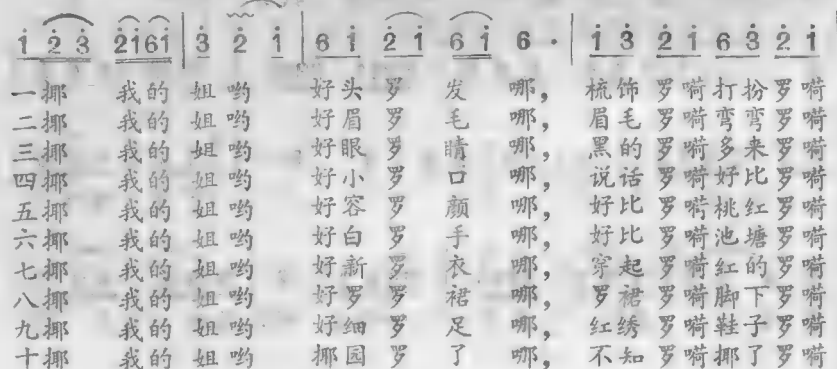 1̇ 2̇ 3̇ 2̇1̇61̇ | 3̇ 2̇ 1̇ | 6 1̇ 2̇ 1̇ 6 1̇ 6 · | 1̇ 3̇ 2̇ 1̇ 6 3̇ 2̇ 1̇
一揶 我的 姐哟 好头 罗 发 哪, 梳饰 罗嗬打扮罗嗬
二揶 我的 姐哟 好眉 罗 毛 哪, 眉毛 罗嗬弯弯罗嗬
三揶 我的 姐哟 好眼 罗 睛 哪, 黑的 罗嗬多来罗嗬
四揶 我的 姐哟 好小 罗 口 哪, 说话 罗嗬好比罗嗬
五揶 我的 姐哟 好容 罗 颜 哪, 好比 罗嗬桃红罗嗬
六揶 我的 姐哟 好白 罗 手 哪, 好比 罗嗬池塘罗嗬
七揶 我的 姐哟 好新 罗 衣 哪, 穿起 罗嗬红的罗嗬
八揶 我的 姐哟 好罗 罗 裙 哪, 罗裙 罗嗬脚下罗嗬
九揶 我的 姐哟 好细 罗 足 哪, 红绣 罗嗬鞋子罗嗬
十揶 我的 姐哟 揶园 罗 了 哪, 不知 罗嗬揶了罗嗬